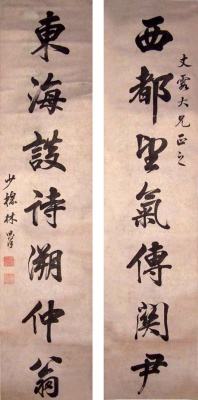 文露大兄正之
西都望氣傳關尹
東海談詩溯仲翁
少穆林則徐